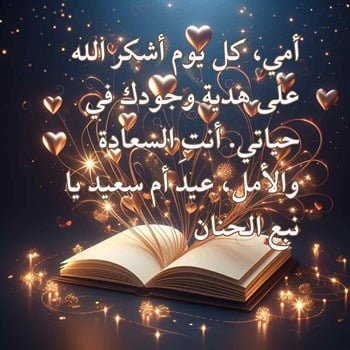 أمي، كل يوم أشكر الله
على هدية وجودك في
حياتي. أنتِ السعادة
والأمل، عيد أم سعيد يا
نبع الحنان